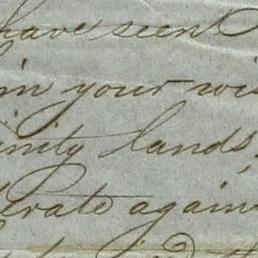 have seen
in your wis
inity lands,
erate again